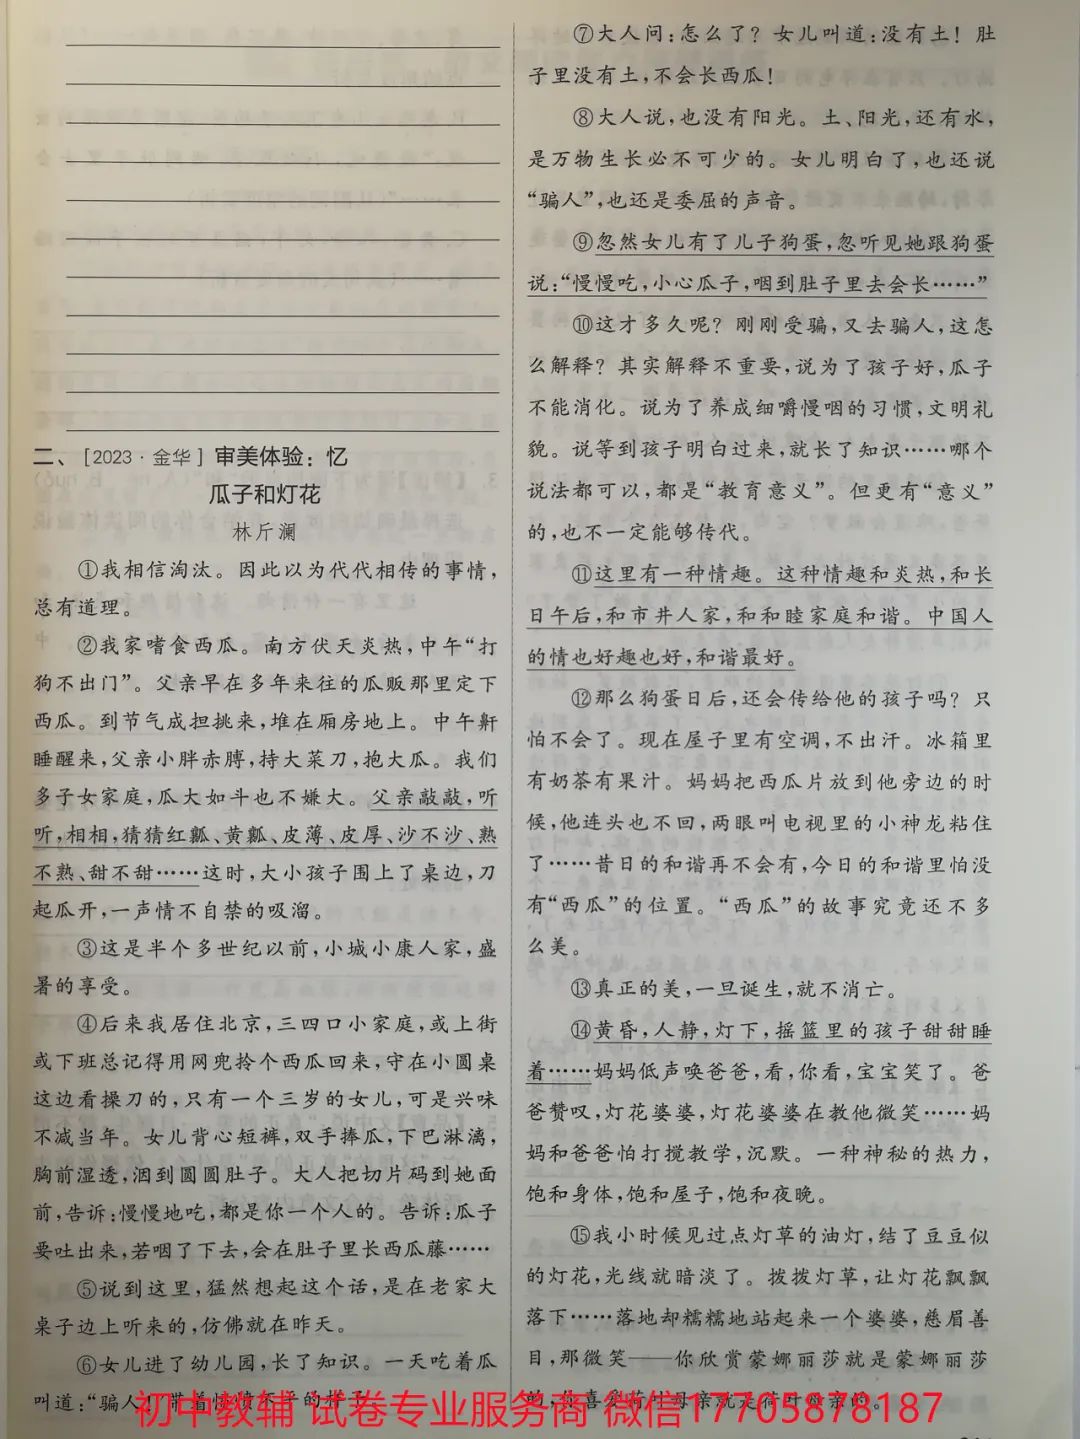 二、[2023·金华]审美体验：忆
瓜子和灯花
林斤澜
①我相信淘汰。因此以为代代相传的事情，
总有道理。
②我家嗜食西瓜。南方伏天炎热，中午“打
狗不出门”。父亲早在多年来往的瓜贩那里定下
西瓜。到节气成担挑来，堆在厢房地上。中午鼾
睡醒来，父亲小胖赤膊，持大菜刀，抱大瓜。我们
多子女家庭，瓜大如斗也不嫌大。父亲敲敲，听
听，相相，猜猜红瓤、黄瓤、皮薄、皮厚、沙不沙、熟
不熟、甜不甜……这时，大小孩子围上了桌边，刀
起瓜开，一声情不自禁的吸溜。
③这是半个多世纪以前，小城小康人家，盛
暑的享受。
④后来我居住北京，三四口小家庭，或上街
或下班总记得用网兜拎个西瓜回来，守在小圆桌
这边看操刀的，只有一个三岁的女儿，可是兴味
不减当年。女儿背心短裤，双手捧瓜，下巴淋漓，
胸前湿透，洇到圆圆肚子。大人把切片码到她面
前，告诉：慢慢地吃，都是你一个人的。告诉：瓜子
要吐出来，若咽了下去，会在肚子里长西瓜藤……
⑤说到这里，猛然想起这个话，是在老家大
桌子边上听来的，仿佛就在昨天。
⑥女儿进了幼儿园，长了知识。一天吃着瓜
叫道：“骗人！”带着愤愤不平的样子。
⑦大人问：怎么了？女儿叫道：没有土！肚
子里没有土，不会长西瓜！
⑧大人说，也没有阳光。土、阳光，还有水，
是万物生长必不可少的。女儿明白了，也还说
“骗人”，也还是委屈的声音。
⑨忽然女儿有了儿子狗蛋，忽听见她跟狗蛋
说：“慢慢吃，小心瓜子，咽到肚子里去会长……”
⑩这才多久呢？刚刚受骗，又去骗人，这怎
么解释？其实解释不重要，说为了孩子好，瓜子
不能消化。说为了养成细嚼慢咽的习惯，文明礼
貌。说等到孩子明白过来，就长了知识……哪个
说法都可以，都是“教育意义”。但更有“意义”
的，也不一定能够传代。
⑪这里有一种情趣。这种情趣和炎热，和长
日午后，和市井人家，和和睦家庭和谐。中国人
的情也好趣也好，和谐最好。
⑫那么狗蛋日后，还会传给他的孩子吗？只
怕不会了。现在屋子里有空调，不出汗。冰箱里
有奶茶有果汁。妈妈把西瓜片放到他旁边的时
候，他连头也不回，两眼叫电视里的小神龙粘住
了……昔日的和谐再不会有，今日的和谐里怕没
有“西瓜”的位置。“西瓜”的故事究竟还不多
么美。
⑬真正的美，一旦诞生，就不消亡。
⑭黄昏，人静，灯下，摇篮里的孩子甜甜睡
着……妈妈低声唤爸爸，看，你看，宝宝笑了。爸
爸赞叹，灯花婆婆，灯花婆婆在教他微笑……妈
妈和爸爸怕打搅教学，沉默。一种神秘的热力，
饱和身体，饱和屋子，饱和夜晚。
⑮我小时候见过点灯草的油灯，结了豆豆似
的灯花，光线就暗淡了。拨拨灯草，让灯花飘飘
落下……落地却糯糯地站起来一个婆婆，慈眉善
目，那微笑——你欣赏蒙娜丽莎就是蒙娜丽莎
的，你喜爱荷叶母亲就是荷叶母亲的。
初中教辅 试卷专业服务商 微信17705878187